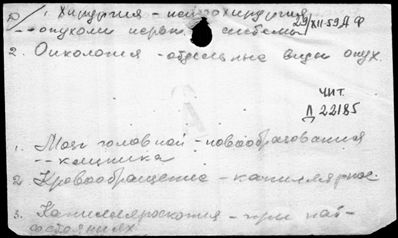 1. Хирургия - нейрохирургия
-- опухоли нервн. системы 29/XII-59 ДФ
2. Онкология - отдельные виды опух.
ЧИТ.
Д 22185
1. Мозг головной - новообразования
-- клиника
2. Кровообращение - капиллярное.
3. Капилляроскопия - при пат-
состояниях